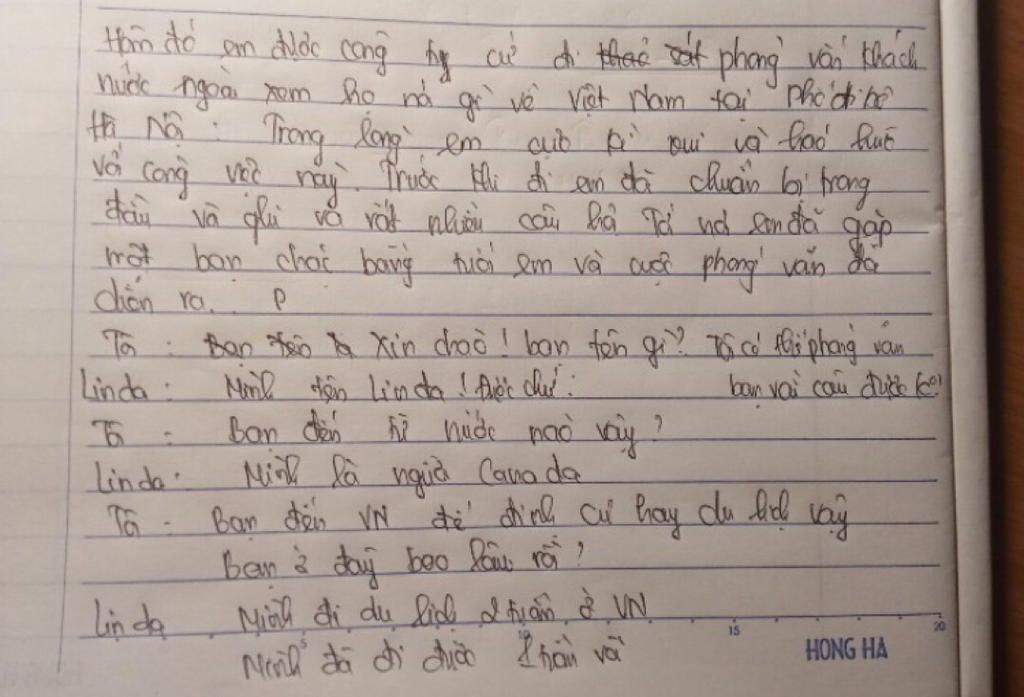 Hôm đó em được công ty cử đi phỏng vấn khách
nước ngoài xem họ nói gì về Việt Nam tại phố đi bộ
Hà Nội. Trong lòng em cực kì vui và háo hức
với công việc này. Trước khi đi em đã chuẩn bị trong
đầu và ghi ra rất nhiều câu hỏi. Tới nơi em đã gặp
một bạn chắc bằng tuổi em và cuộc phỏng vấn đã
diễn ra. P
Tôi : Xin chào! bạn tên gì? Tôi có thể phỏng vấn
Linda : Mình tên Linda! Được chứ. bạn vài câu được ko?
Tôi : Bạn đến từ nước nào vậy?
Linda: Mình là người Canada
Tôi : Bạn đến VN để định cư hay du lịch vậy
Bạn ở đây bao lâu rồi?
Linda Mình đi du lịch 2 tuần ở VN
Mình đã đi được 1 tuần và
15
20
HONG HA